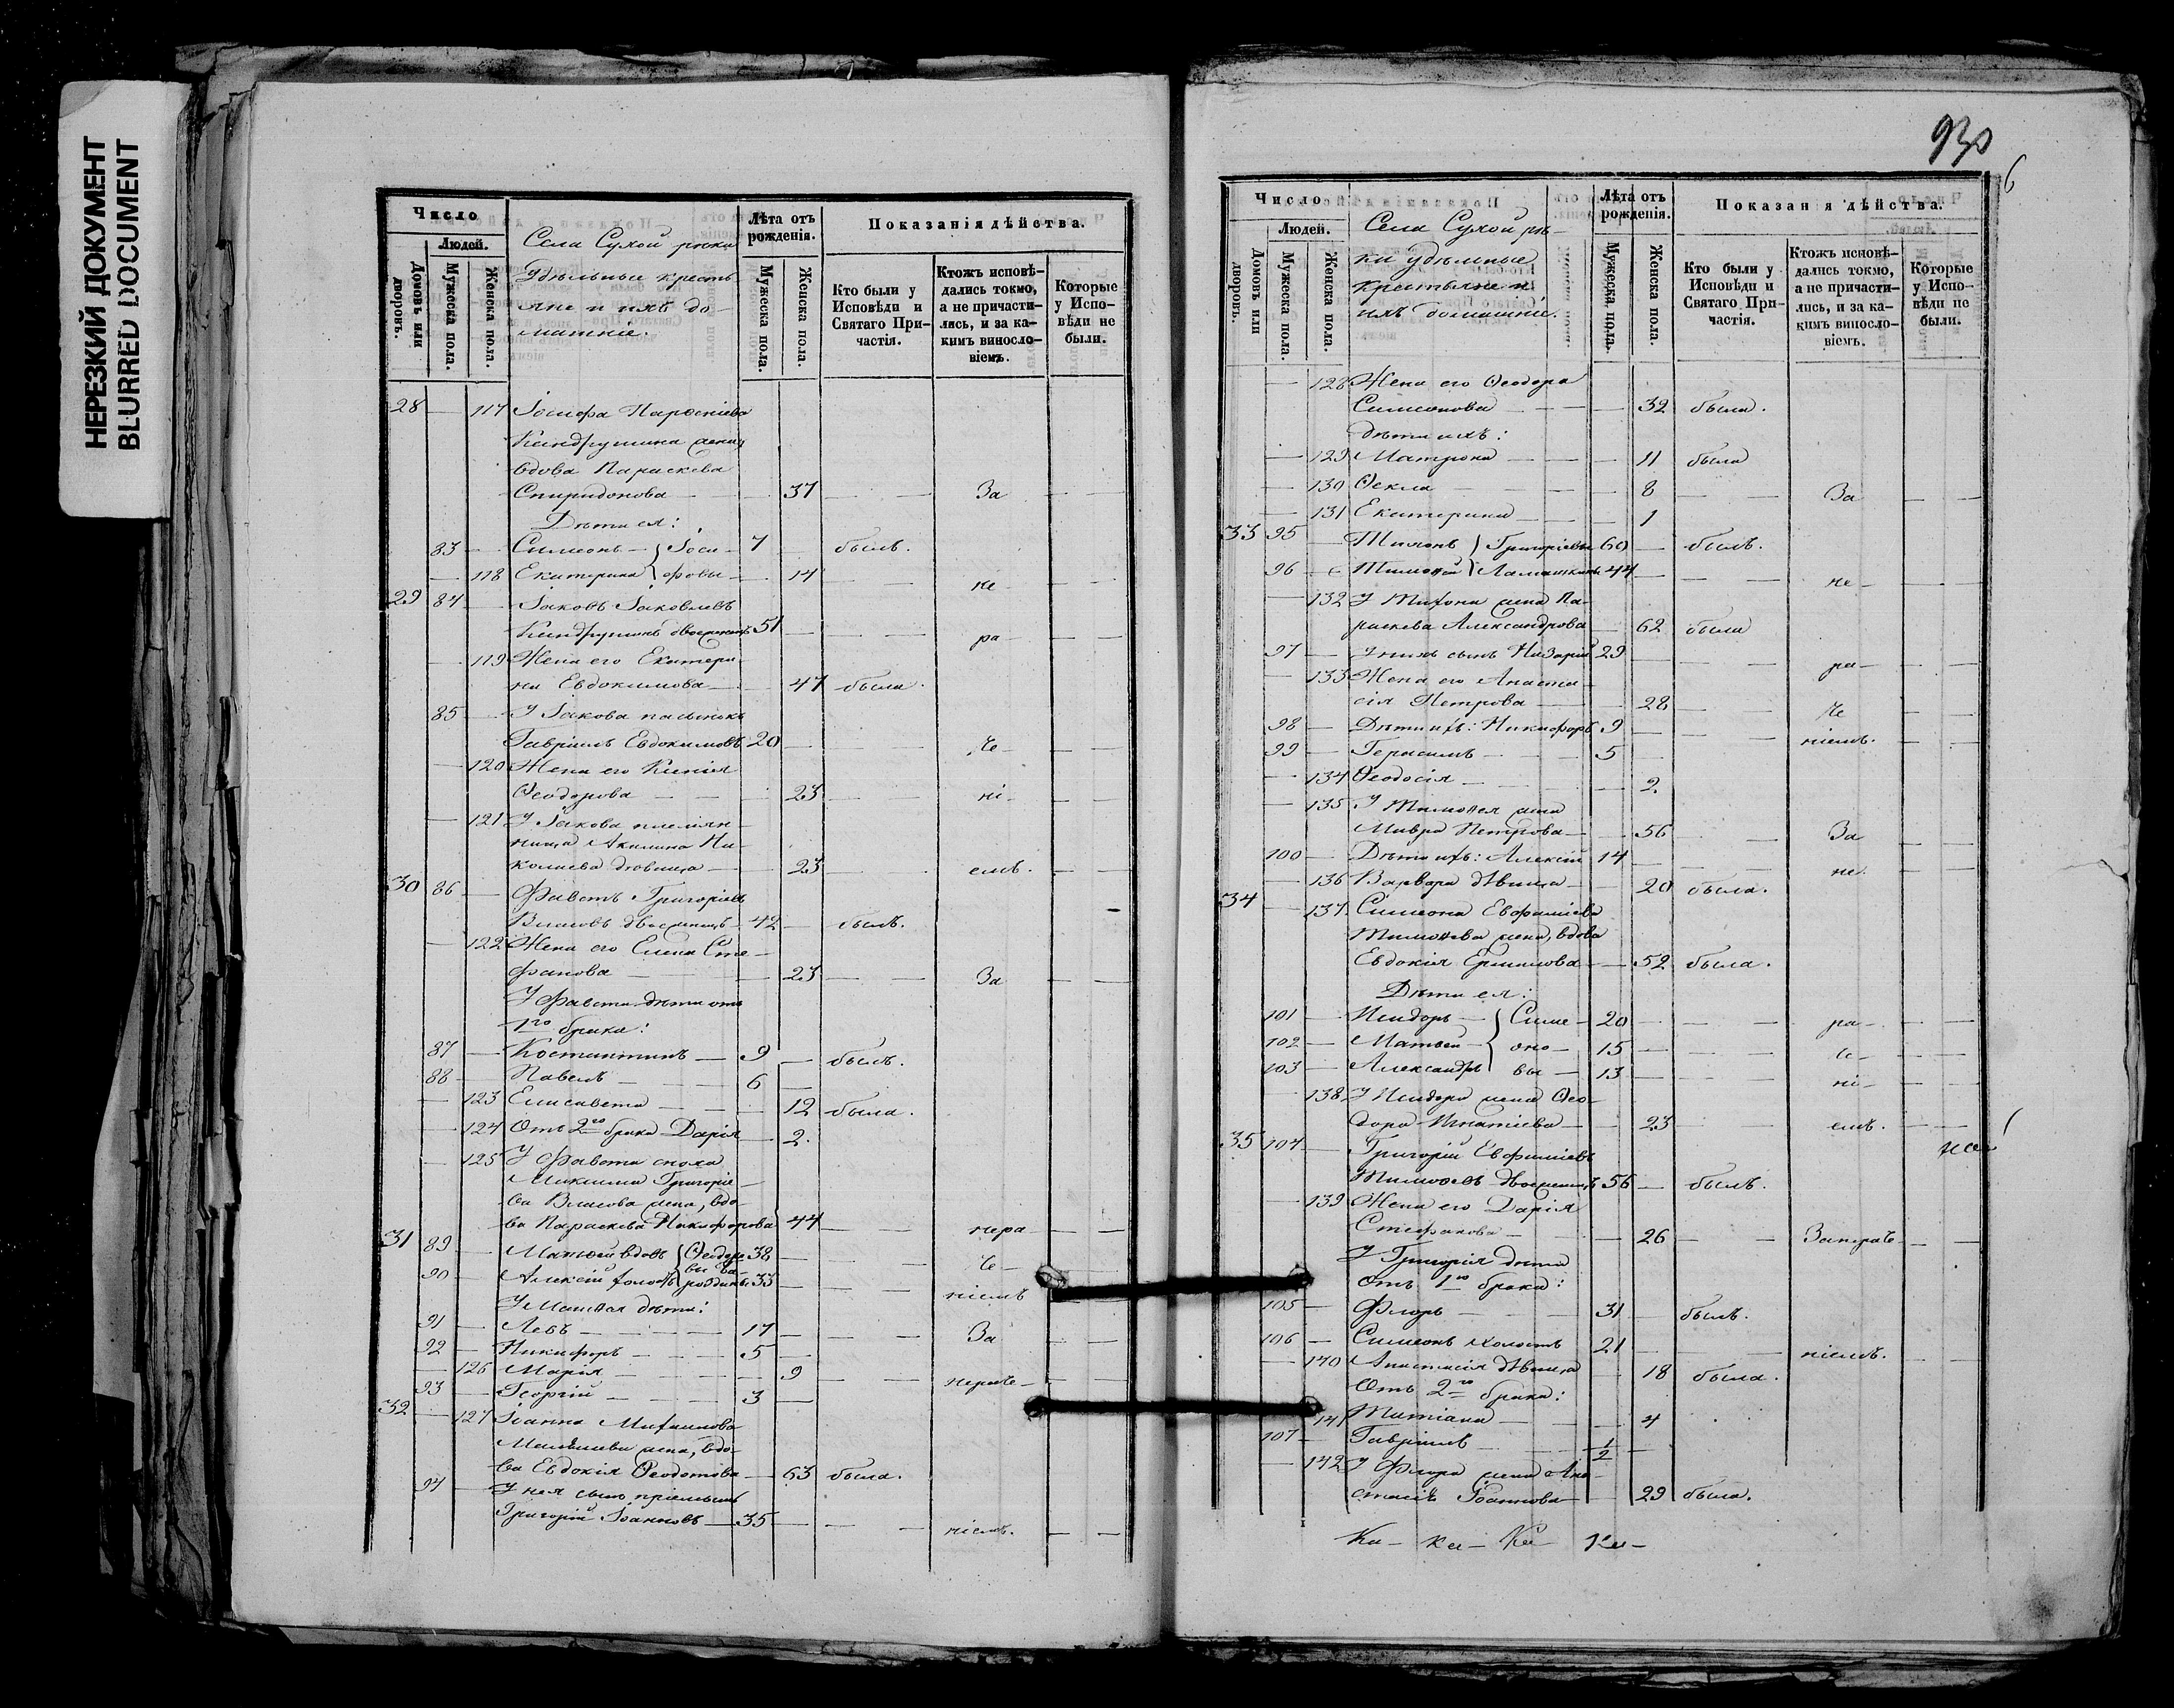 НЕРЕЗКИЙ ДОКУМЕНТ
BLURRED DOCUMENT
Число
Людей.
Домовъ или дворовъ.
Мужеска пола.
Женска пола.
Села Сухой рѣки
Удѣльные кресть
яне и ихъ до-
машніе.
Лѣта отъ рожденія.
Мужеска пола.
Женска пола.
Показанія дѣйства.
Кто были у Исповѣди и Святаго При-частія.
Ктожъ исповѣ-дались токмо, а не причасти-лись, и за ка-кимъ винословіемъ.
Которые у Испо-вѣди не были.
28 — 117 Іосифа
Кандрушина жена,
вдова Параскева
Спиридонова — 37 — За — —
Дѣти ея:
83 — Симеонъ — Іоси- 7 — былъ.
— 118 Екатерина фовы — 14 — не — —
29 84 — Іаковъ Іаковлевъ
Кандрушинъ двоеженецъ 51 — — ра — —
— 119 Жена его Екатери
на Евдокимова — 47 была.
85 — У Іакова пасынокъ
Гавріилъ Евдокимовъ 20 — — че — —
— 120 Жена его Ксенія
Ѳеодорова — — 23 — ні- — —
— 121 У Іакова племян
ница Акилина Ни
колаева дѣвица — 23 — емъ. — —
30 86 — Фавстъ Григоріевъ
Власовъ двоеженецъ 42 — былъ.
— 122 Жена его Елена Сте-
фанова — 23 — За — —
У Фавста дѣти отъ
1го брака:
87 — Костантинъ — 9 — былъ.
88 — Павелъ — 6 —
— 123 Елисавета — 12 была.
— 124 Отъ 2го брака Дарія — 2.
— 125 У Фавста сноха
Максима Григоріе-
ва Власова жена, вдо-
ва Параскева Никифорова 44 — нера — —
31 89 — Матѳей вдовъ Ѳеодоро 38 — — че — —
90 — Алексій холостъ 33 — — ніемъ — —
У Матѳея дѣти:
91 — Левъ — 17 — — За — —
92 — Никифоръ — 5 —
— 126 Марія — 9 — нераче — —
93 — Георгій — 3 —
32 — 127 Іоанна
жена, вдо-
ва Евдокія Ѳеодотова — 63 была.
94 — У нея сынъ пріемышъ
Григорій Іоанновъ — 35 — — ніемъ. — —
930
6
Число
Людей.
Домовъ или дворовъ.
Мужеска пола.
Женска пола.
Села Сухой рѣ-
ки удѣльные
крестьяне и
ихъ домашніе.
Лѣта отъ рожденія.
Мужеска пола.
Женска пола.
Показан я дѣйства.
Кто были у Исповѣди и Святаго При-частія.
Ктожъ исповѣ-дались токмо, а не причасти-лись, и за ка-кимъ винословіемъ.
Которые у Испо-вѣди не были.
— 128 Жена его Ѳеодора
Симеонова — — 32 была.
дѣти ихъ:
— 129 Матрона — — 11 была
— 130 Ѳекла — — 8 — — За — —
— 131 Екатерина — — 1
33 95 — Григоріевы 60 — былъ.
96 — Тимоѳей 44 — — не- — —
— 132 жена Па-
раскева Александрова — 62 была
97 — У нихъ сынъ Назарій 29 — — ра- — —
— 133 Жена его Анаста
сія Петрова — — 28 — че — —
98 — Дѣти ихъ: Никифоръ 9 — — ніемъ. — —
99 — Герасимъ — 5 —
— 134 Ѳеодосія — — 2.
— 135 У Тимоѳея жена
Мавра Петрова — 56 — — За — —
100 — Дѣти ихъ: Алексій 14 — — не. — —
— 136 Варвара дѣвица — 20 была.
34 — 137 Симеона Евфиміева
Тимоѳева жена, вдова
Евдокія Ермилова — 52 была.
Дѣти ея:
101 — Исидоръ — Симе- 20 — — ра- — —
102 — Матѳей — оно- 15 — — че- — —
103 — Александръ вы — 13 — — ні- — —
— 138 У Исидора жена Ѳео-
дора Игнатіева — 23 — емъ. — —
35 104 — Григорій Евфиміевъ
Тимоѳевъ двоеженецъ 56 — былъ.
— 139 Жена его Дарія
Стефанова — — 26 — — Занераче — —
У Григорія дѣти
отъ 1го брака:
105 — Флоръ — 31 — былъ.
106 — Симеонъ холостъ 21 — — ніемъ. — —
— 140 Анастасія дѣвица — 18 была.
Отъ 2го брака:
141 Татіана — — 4
107 — Гавріилъ — 1/2 —
— 142 У Флора жена Ана-
стасія Іоаннова — 29 была.
Ка- ка- Ка- Ка-